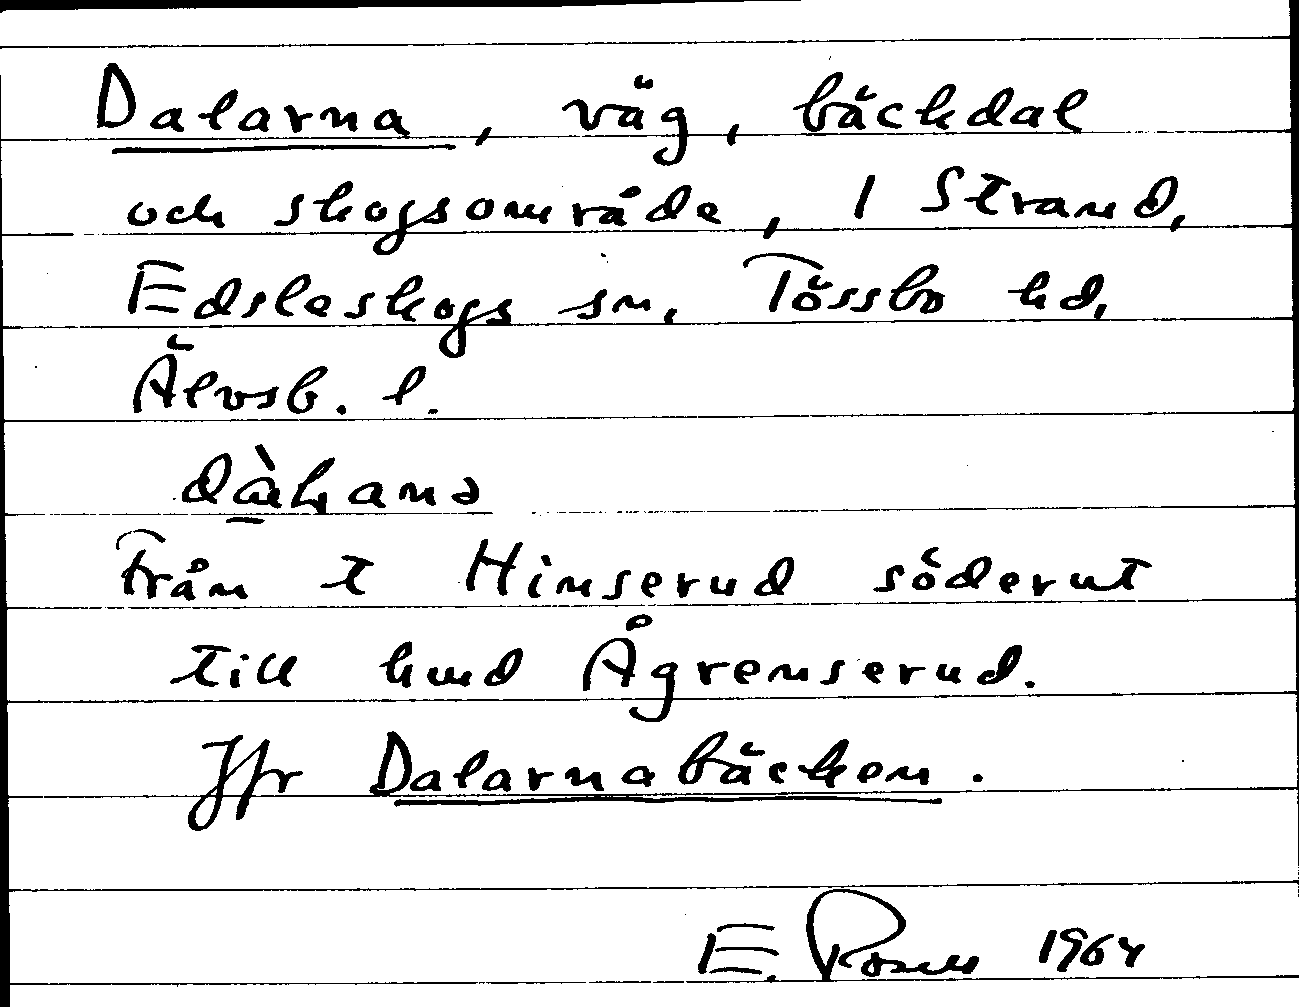 Dalarna, väg, bäckdal
och skogsområde, 1 Strand,
Edsleskogs sn. Tössbo hd,
Älvsb. l.
Från t Hinserud söderut
till hmd Ågrenserud.
Jfr Dalarnabäcken.
E. 1964